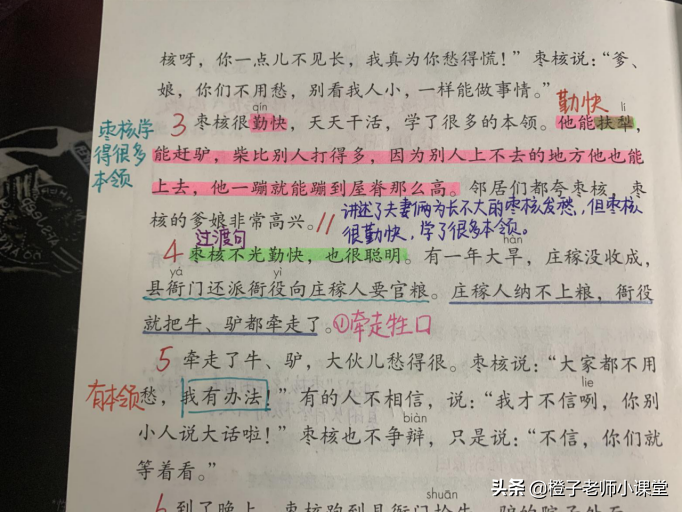 核呀，你一点儿不见长，我真为你愁得慌！”枣核说：“爹、
娘，你们不用愁，别看我人小，一样能做事情。”
勤快
qín
lí
3 枣核很勤快，天天干活，学了很多的本领。他能扶犁，
枣核学
得很多
本领
能赶驴，柴比别人打得多，因为别人上不去的地方他也能
上去，他一蹦就能蹦到屋脊那么高。邻居们都夸枣核，枣
核的爹娘非常高兴。//
讲述了夫妻俩为长不大的枣核发愁，但枣核
很勤快，学了很多本领。
过渡句
hàn
4 枣核不光勤快，也很聪明。有一年大旱，庄稼没收成，
yá
yì
县衙门还派衙役向庄稼人要官粮。庄稼人纳不上粮，衙役
就把牛、驴都牵走了。①牵走牲口
5 牵走了牛、驴，大伙儿愁得很。枣核说：“大家都不用
有本领
lie
愁，我有办法！”有的人不相信，说：“我才不信咧，你别
biàn
小人说大话啦！”枣核也不争辩，只是说：“不信，你们就
等着看。”
shuān
6 到了晚上，枣核跑到县衙门拴牛、驴的院子外面
头条 @橙子老师小课堂